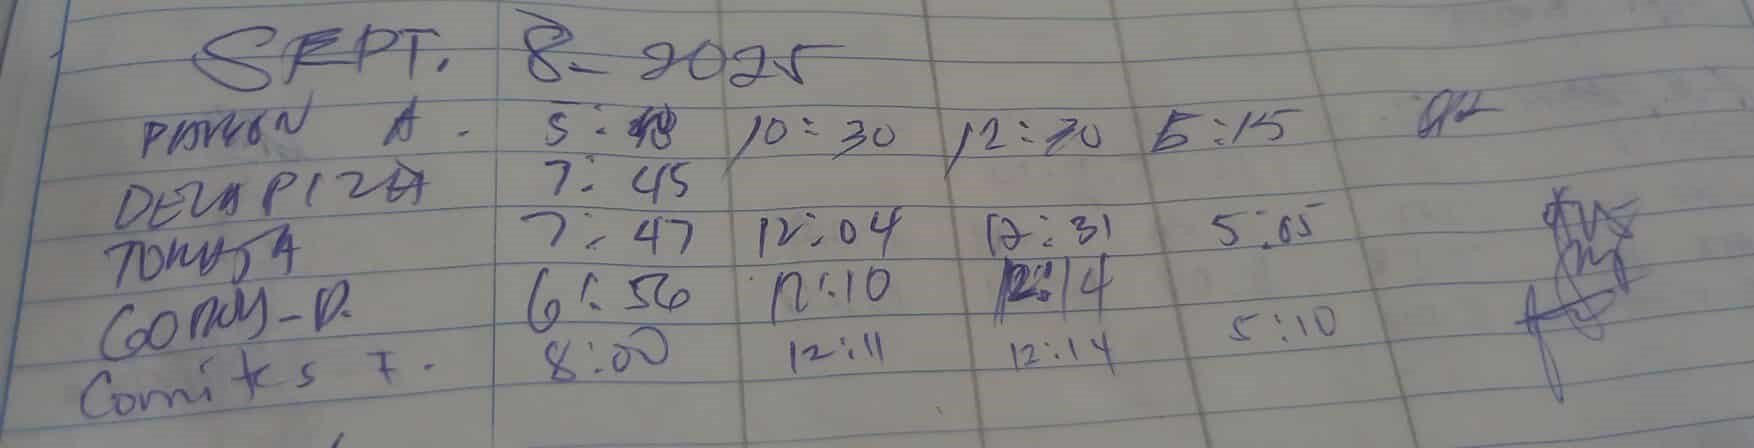 SEPT. 8-2025
A. 5: 10:30 12:30 5:15
DELAPIZA 7:45
7:47 12:04 12:31 5:05
GOMY-D. 6:56 12:10 12:14
Comites F. 8:00 12:11 12:14 5:10